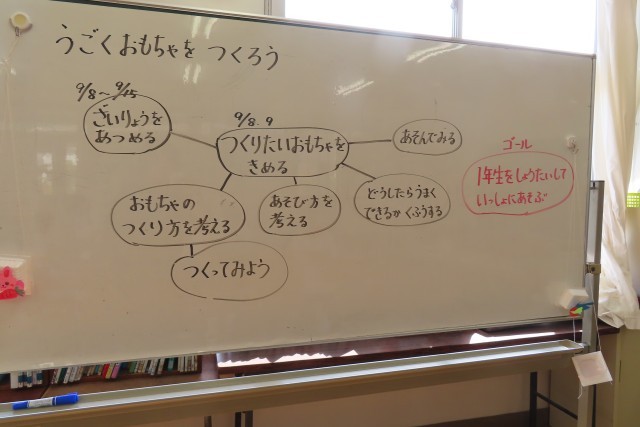 うごくおもちゃを つくろう
9/8～9/15
ざいりょうを
あつめる
9/8.9
つくりたいおもちゃを
きめる
あそんでみる
おもちゃの
つくり方を考える
あそび方を
考える
どうしたらうまく
できるか くふうする
つくってみよう
ゴール
1年生をしょうたいして
いっしょにあそぶ